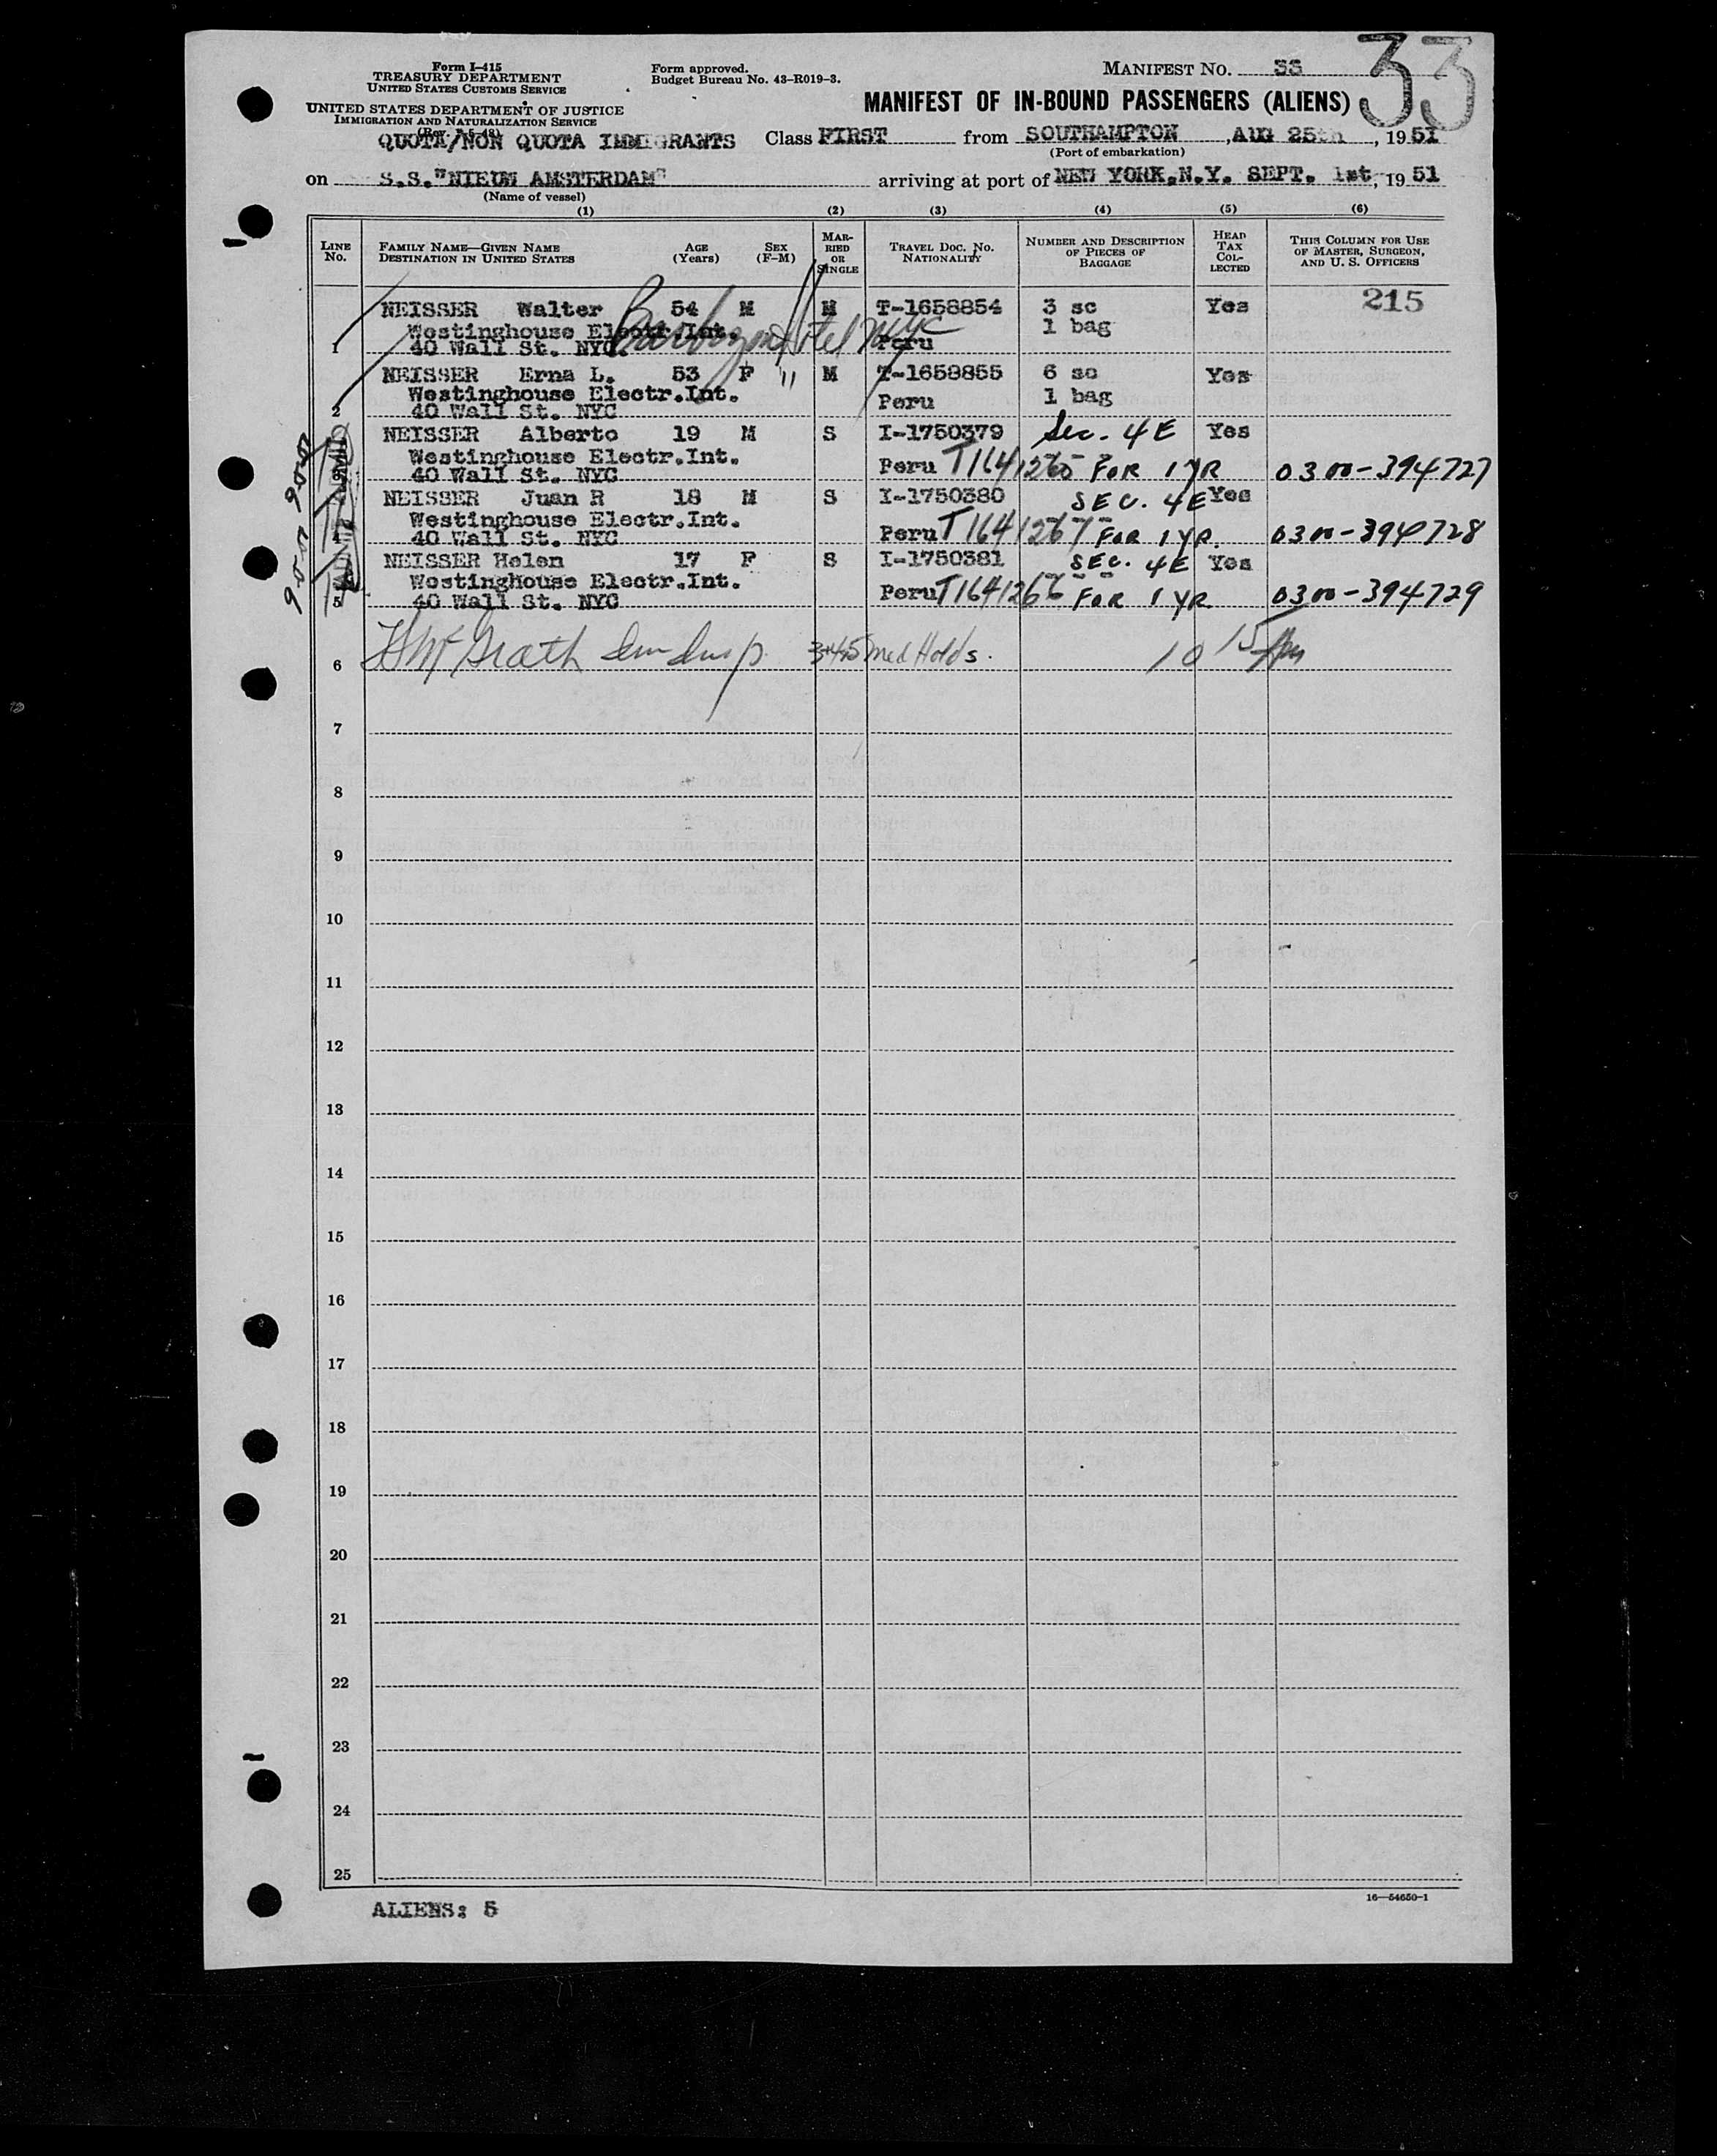 Form I-415
TREASURY DEPARTMENT
UNITED STATES CUSTOMS SERVICE
UNITED STATES DEPARTMENT OF JUSTICE
IMMIGRATION AND NATURALIZATION SERVICE
QUOTA/NON QUOTA IMMIGRANTS
Form approved.
Budget Bureau No. 43-R019-3.
MANIFEST NO. 33
33
MANIFEST OF IN-BOUND PASSENGERS (ALIENS)
Class FIRST from SOUTHAMPTON, AUG 25th, 1951
(Port of embarkation)
on S.S."NIEUW AMSTERDAM" arriving at port of NEW YORK,N.Y. SEPT. 1st, 1951
(Name of vessel)
(1) (2) (3) (4) (5) (6)
LINE NO.
FAMILY NAME—GIVEN NAME
DESTINATION IN UNITED STATES
AGE (Years)
SEX (F-M)
MARRIED OR SINGLE
TRAVEL DOC. NO. NATIONALITY
NUMBER AND DESCRIPTION OF PIECES OF BAGGAGE
HEAD TAX COLLECTED
THIS COLUMN FOR USE OF MASTER, SURGEON, AND U. S. OFFICERS
215
NEISSER Walter 54 M M T-1658854 3 sc Yes
Westinghouse Electr.Int. 1 bag
Barbizon Hotel NYC
1 40 Wall St. NYC. Peru
NEISSER Erna L. 53 F " M T-1658855 6 sc Yes
Westinghouse Electr.Int. 1 bag
2 40 Wall St. NYC Peru
NEISSER Alberto 19 M S I-1750379 Sec. 4E Yes
Westinghouse Electr.Int.
40 Wall St. NYC Peru T1641265 FOR 1 YR 0300-394727
NEISSER Juan R 18 M S I-1750380 SEC. 4E Yes
Westinghouse Electr.Int.
4 40 Wall St. NYC Peru T1641267 FOR 1 YR. 0300-394728
NEISSER Helen 17 F S I-1750381 SEC. 4E Yes
Westinghouse Electr.Int.
5 40 Wall St. NYC Peru T1641266 FOR 1 YR 0300-394729
6 McGrath Imm Insp. 3+4+5 Med Holds. 10 15
7
8
9
10
11
12
13
14
15
16
17
18
19
20
21
22
23
24
25
ALIENS: 5
16—54650-1